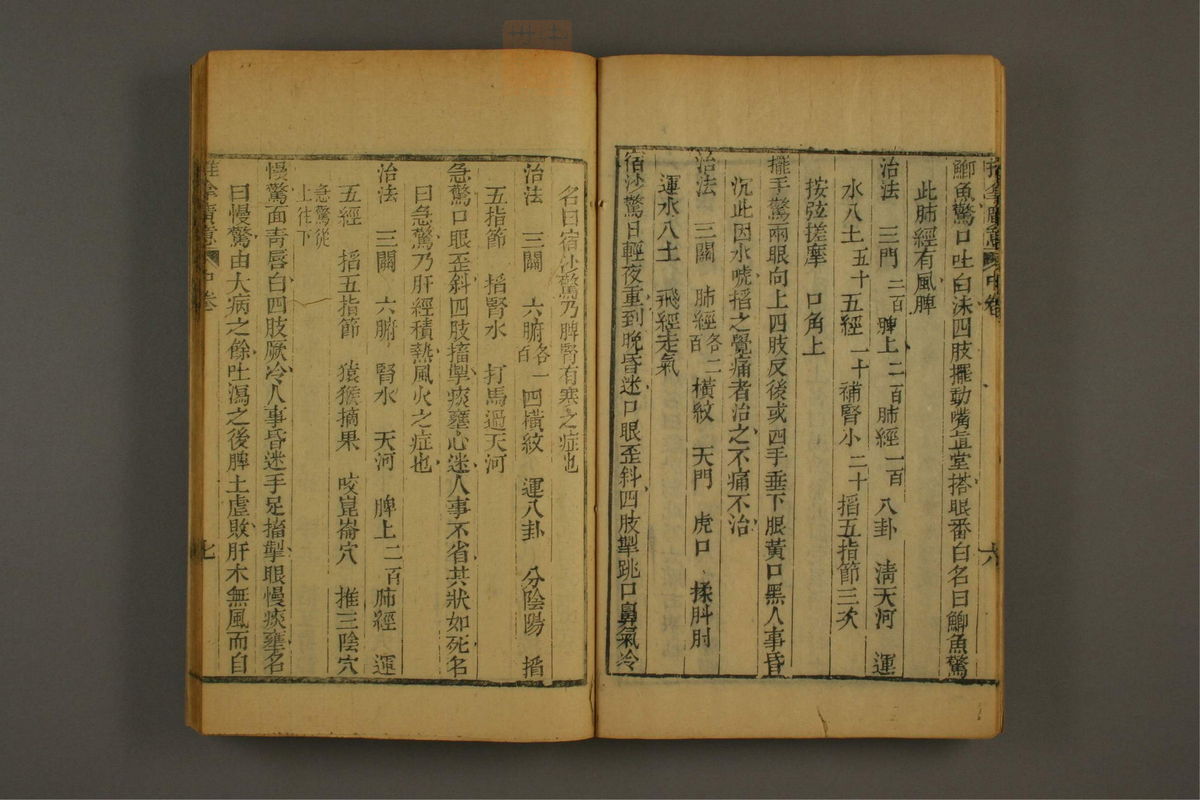 鯽魚驚口吐白沫四肢擺動嘴言堂搭眼番白名曰鯽魚驚
此肺經有風脾
治法 三門二百 脾上二百 肺經一百 八卦 淸天河 運
水八土 五十五經 二十補腎小 二十 掐五指節三次
按弦搓摩 口角上
擺手驚兩眼向上四肢反後或四手垂下眼黃口黑人事昏
沉此因水唬掐之覺痛者治之不痛不治
治法 三關 肺經各二百 橫紋 天門 虎口 揉㪷肘
運水八土 飛經走氣
宿沙驚日輕夜重到晚昏迷口眼歪斜四肢掣跳口鼻氣冷
名曰宿沙驚乃脾腎有寒之症也
治法 三關 六腑各一百 四橫紋 運八卦 分陰陽 掐
五指節 掐腎水 打馬過天河
急驚口眼歪斜四肢搐掣痰壅心迷人事不省其狀如死名
曰急驚乃肝經積熱風火之症也
治法 三關 六腑 腎水 天河 脾上二百 肺經 運
五經 掐五指節 猿猴摘果 咬崑崙穴 推三陰穴
急驚從
上往下
慢驚面青唇白四肢厥冷人事昏迷手足搐掣眼慢痰壅名
曰慢驚由大病之餘吐瀉之後脾土虛敗肝木無風而自
中卷
六
中卷
七